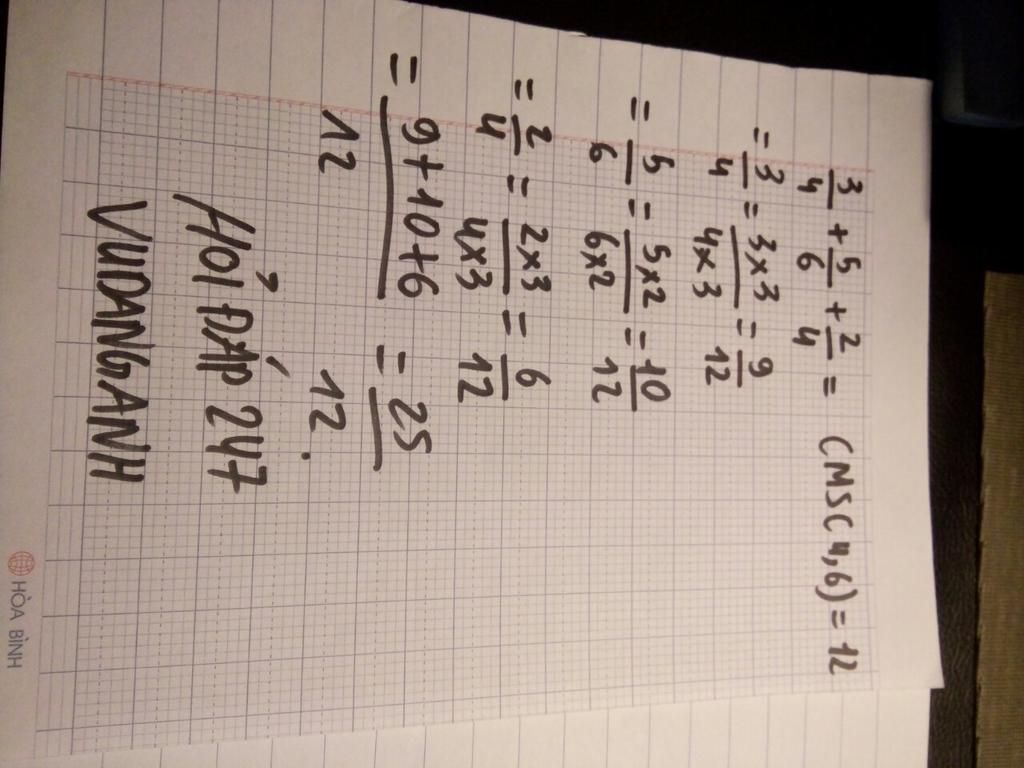 3/4 + 5/6 + 2/4 = CMSC 4,6) = 12
= 3/4 = 3x3/4x3 = 9/12
= 5/6 = 5x2/6x2 = 10/12
= 2/4 = 2x3/4x3 = 6/12
= 9+10+6/12 = 25/12.
HỎI ĐÁP 247
VUDANGANH
HÒA BÌNH